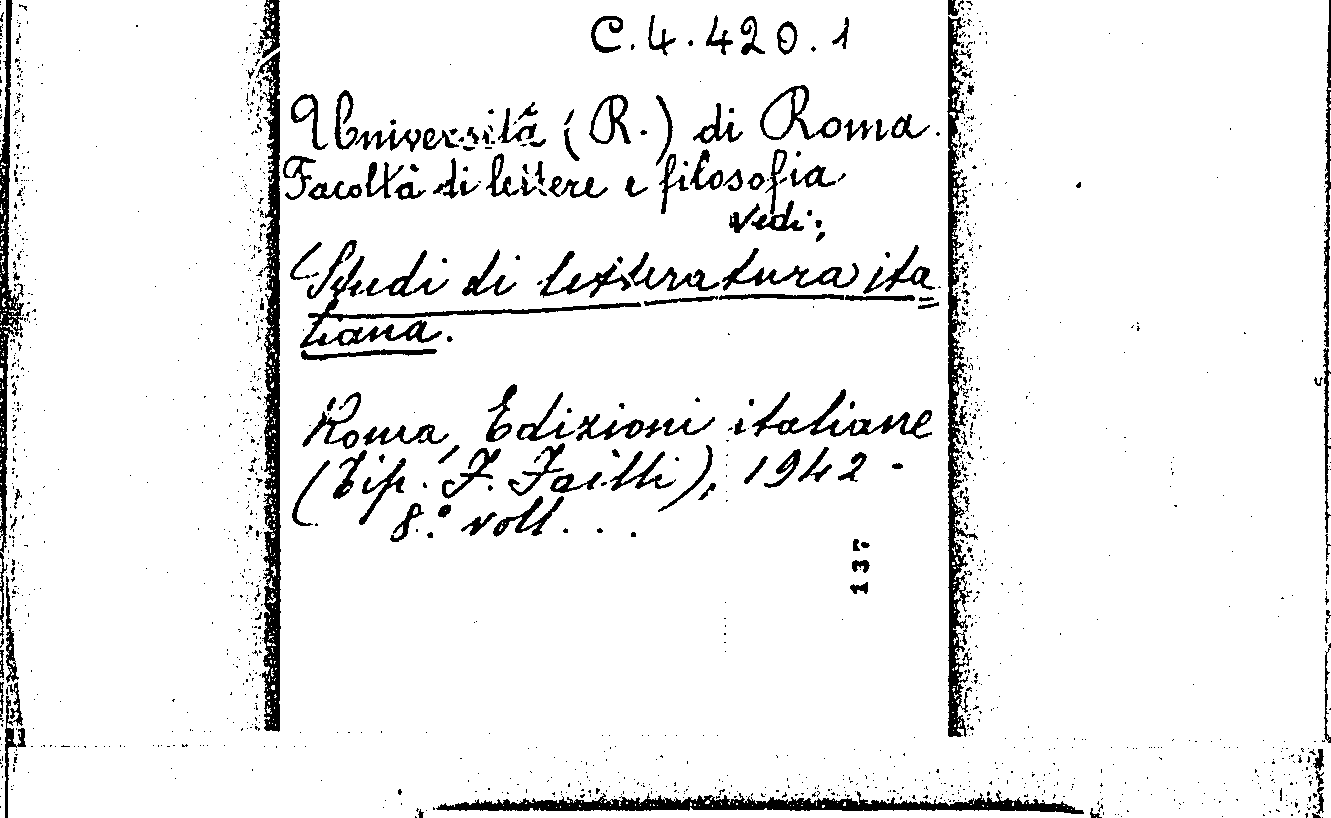 C.4.420.1
Università (R.) di Roma.
Facoltà di lettere e filosofia
vedi:
Studi di letteratura ita=
liana.
Roma, Edizioni italiane
(Tip. F. Failli), 1942 -
8.° voll. . .
137